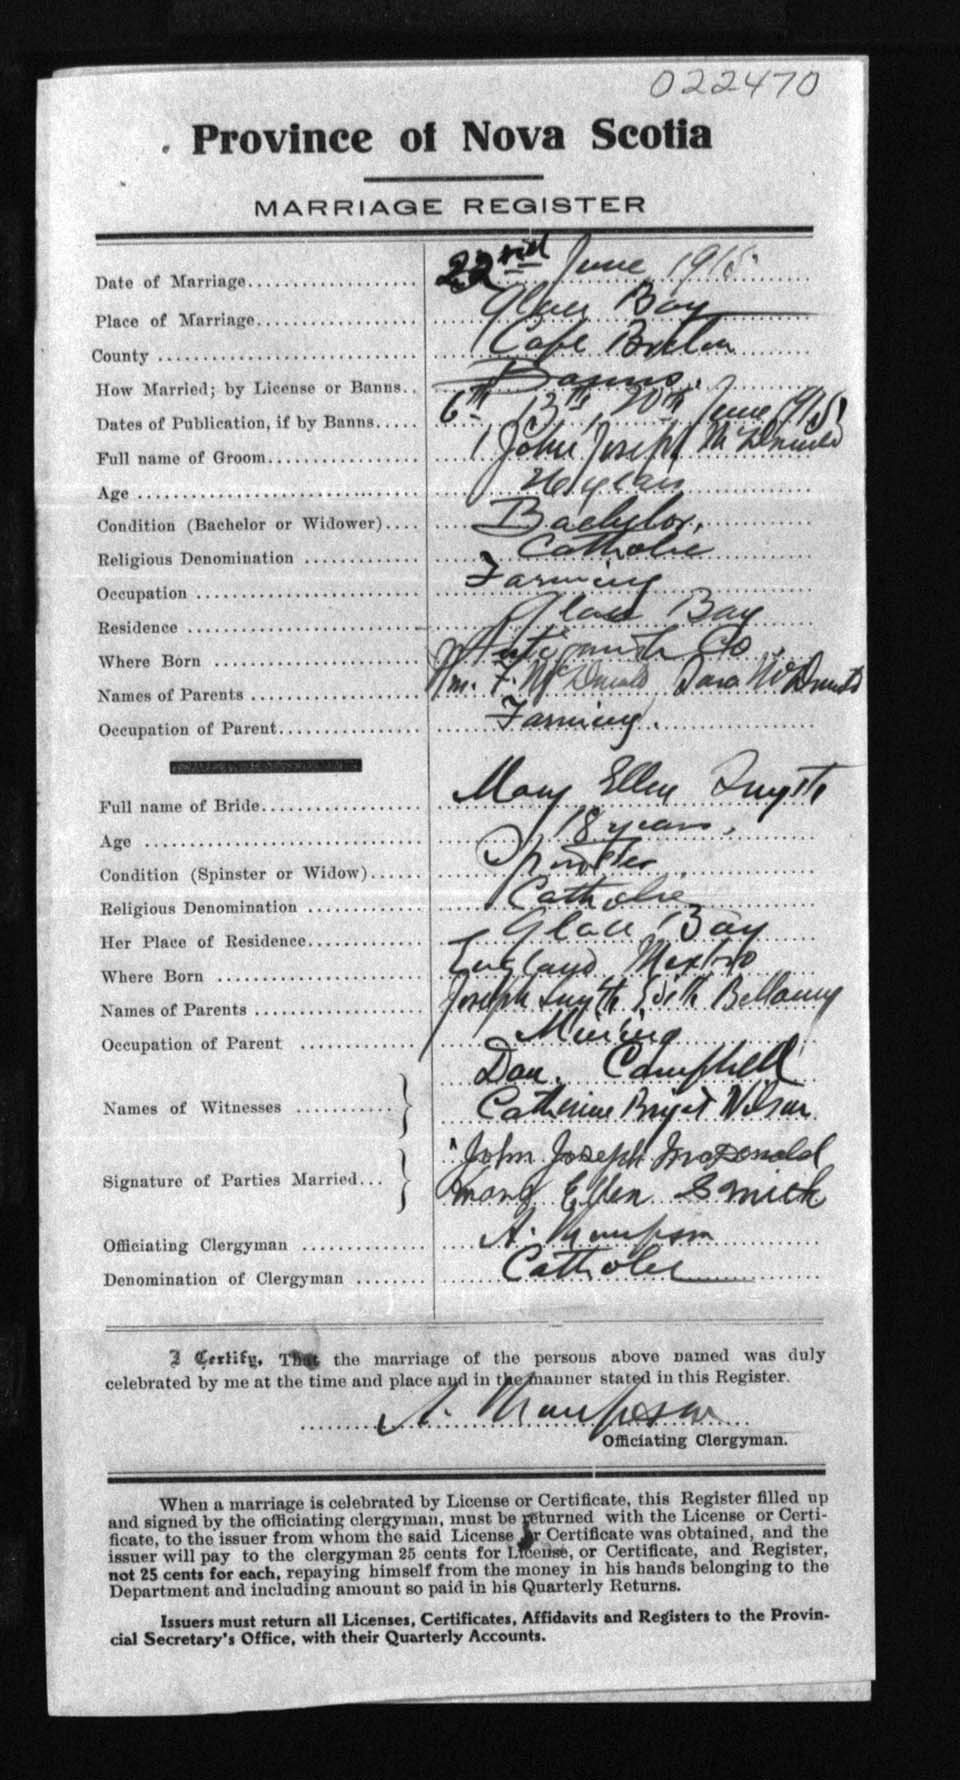 022470
Province of Nova Scotia
MARRIAGE REGISTER
Date of Marriage 22nd June 1915
Place of Marriage Glace Bay
County Cape Breton
How Married; by License or Banns Banns.
Dates of Publication, if by Banns 6th 13th 20th June 1915
Full name of Groom John Joseph McDonald
Age 26 years
Condition (Bachelor or Widower) Bachelor.
Religious Denomination Catholic
Occupation Farming
Residence Glace Bay
Where Born Antigonish Co.
Names of Parents Wm. F. McDonald Sara McDonald
Occupation of Parent Farming.
Full name of Bride Mary Ellen Smyth
Age 18 years.
Condition (Spinster or Widow) Spinster
Religious Denomination Catholic
Her Place of Residence Glace Bay
Where Born England
Names of Parents Joseph Smyth Edith Bellamy
Occupation of Parent Mining
Names of Witnesses Dan. Campbell
Catherine Wilson
Signature of Parties Married John Joseph McDonald
Mary Ellen Smith
Officiating Clergyman A. Thompson
Denomination of Clergyman Catholic
I Certify, That the marriage of the persons above named was duly
celebrated by me at the time and place and in the manner stated in this Register.
A. Thompson
Officiating Clergyman.
When a marriage is celebrated by License or Certificate, this Register filled up
and signed by the officiating clergyman, must be returned with the License or Certi-
ficate, to the issuer from whom the said License or Certificate was obtained, and the
issuer will pay to the clergyman 25 cents for License, or Certificate, and Register,
not 25 cents for each, repaying himself from the money in his hands belonging to the
Department and including amount so paid in his Quarterly Returns.
Issuers must return all Licenses, Certificates, Affidavits and Registers to the Provin-
cial Secretary's Office, with their Quarterly Accounts.